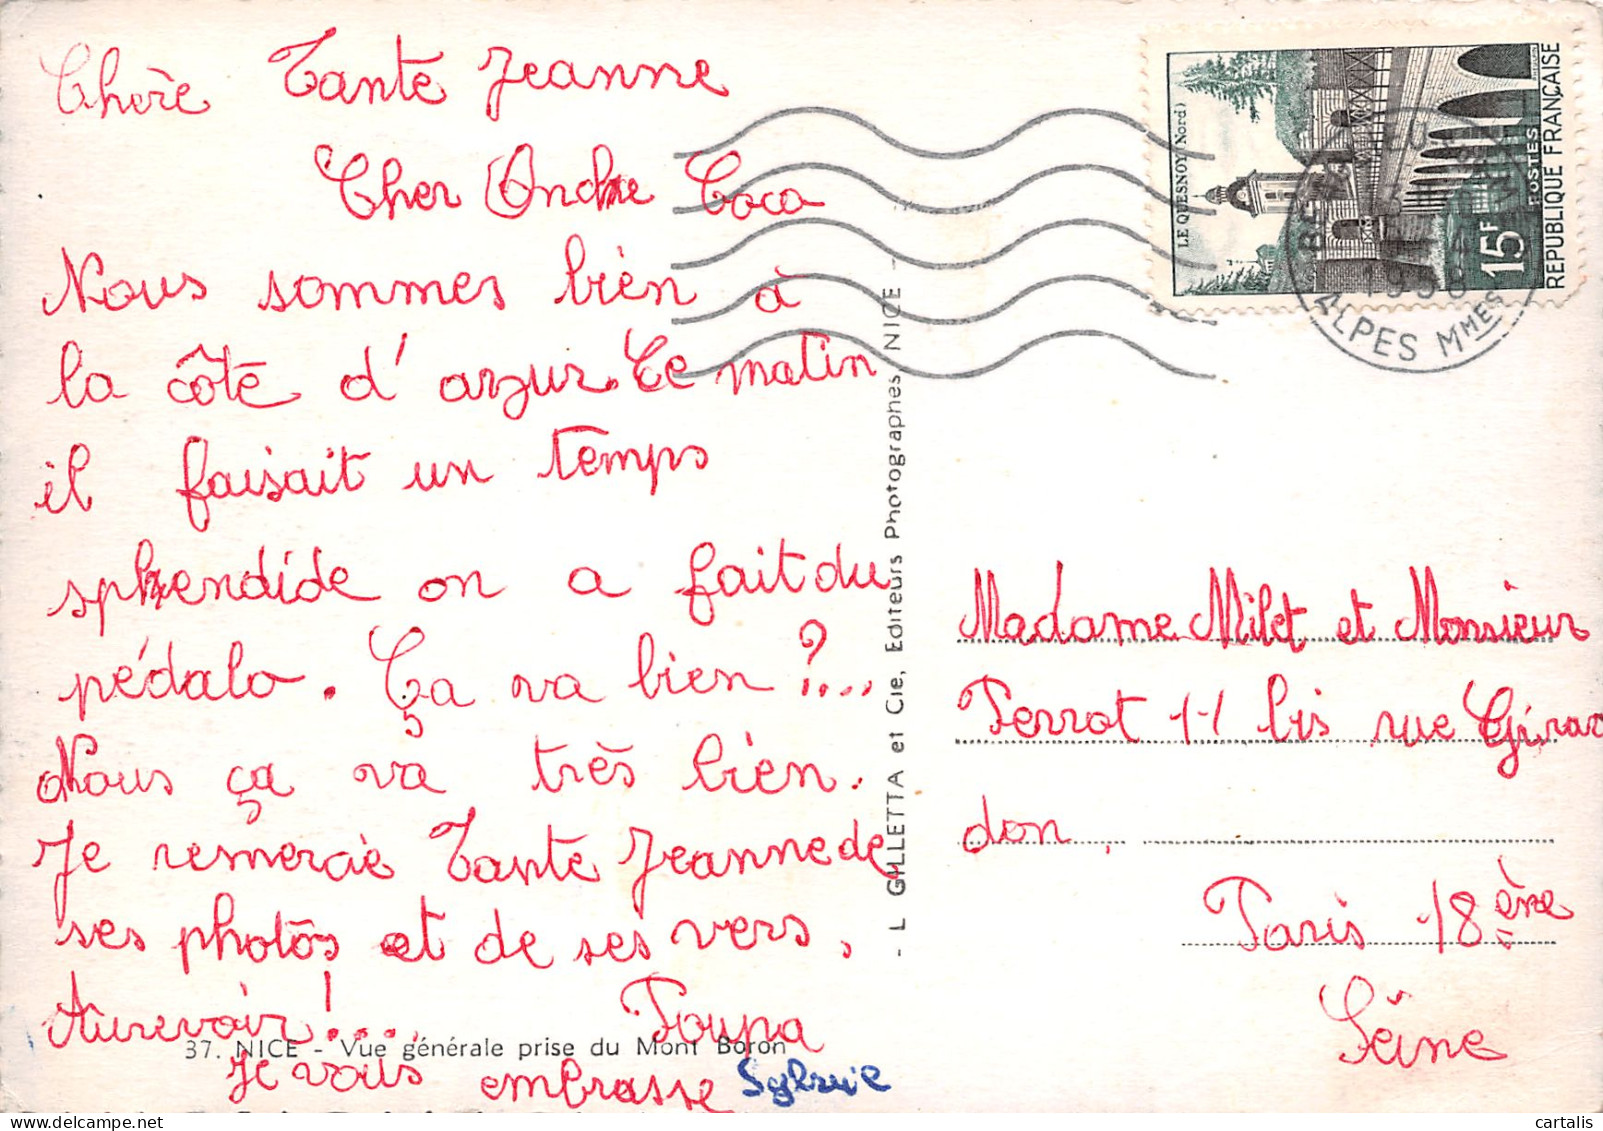 Chère Tante Jeanne
Cher Ondre Coco
Nous sommes bien à
la côte d'azur. Ce matin
il faisait un temps
splendide on a fait du
pédalo. Ça va bien ?....
Nous ça va très bien.
Je remercie Tante Jeanne de
ses photos et de ses vers.
Aurevoir !....
Poupa
Je vous embrasse Sylvie
37. NICE - Vue générale prise du Mont Boron
- L GILLETTA et Cie, Editeurs Photographes, NICE -
LE QUESNOY (Nord)
15F
POSTES
REPUBLIQUE FRANÇAISE
ALPES MMES
Madame Milet et Monsieur
Perrot 11 bis rue Girar
don.
Paris 18 ène
Seine
cartalis